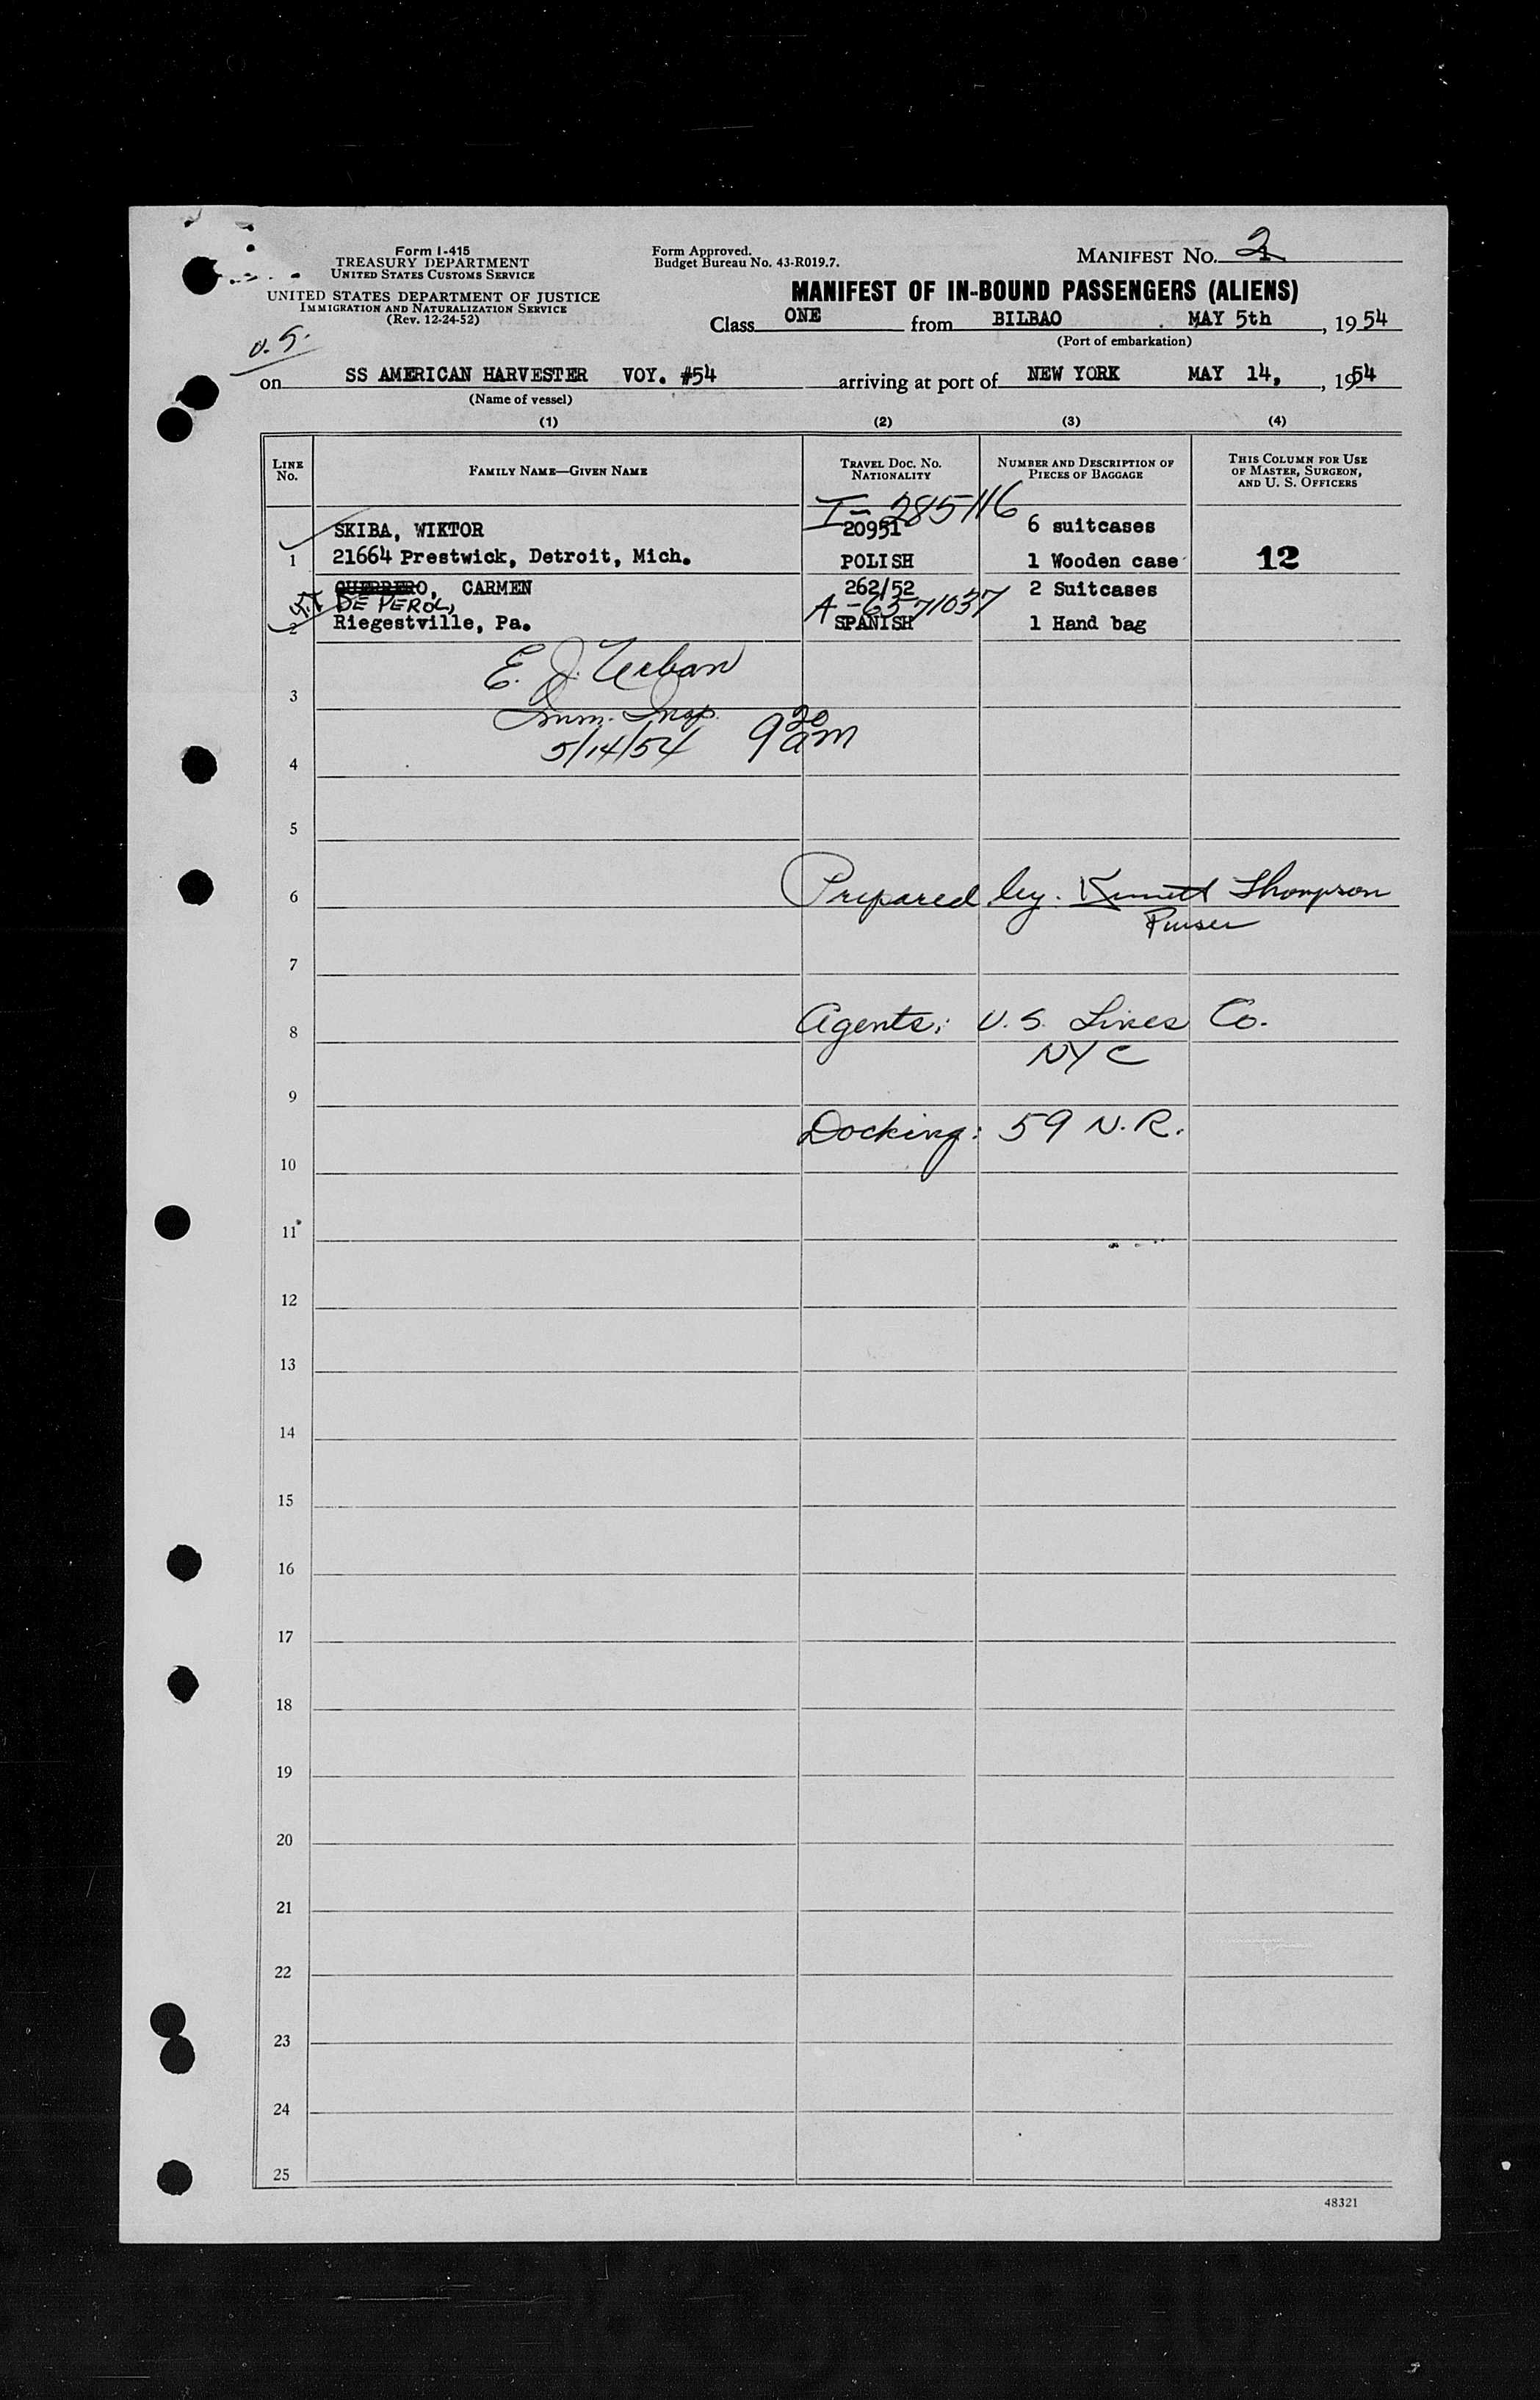 Form I-415
TREASURY DEPARTMENT
UNITED STATES CUSTOMS SERVICE
UNITED STATES DEPARTMENT OF JUSTICE
IMMIGRATION AND NATURALIZATION SERVICE
(Rev. 12-24-52)
Form Approved.
Budget Bureau No. 43-R019.7.
MANIFEST NO. 2
MANIFEST OF IN-BOUND PASSENGERS (ALIENS)
Class ONE from BILBAO MAY 5th, 1954
(Port of embarkation)
U.S.
on SS AMERICAN HARVESTER VOY. #54 arriving at port of NEW YORK MAY 14, , 1954
(Name of vessel)
(1) (2) (3) (4)
LINE NO.
FAMILY NAME—GIVEN NAME
TRAVEL DOC. NO. NATIONALITY
NUMBER AND DESCRIPTION OF PIECES OF BAGGAGE
THIS COLUMN FOR USE OF MASTER, SURGEON, AND U. S. OFFICERS
I-285116
SKIBA, WIKTOR 20951 6 suitcases
1 21664 Prestwick, Detroit, Mich. POLISH 1 Wooden case 12
GUERRERO, CARMEN 262/52 2 Suitcases
DE PEROL, A-6571037
2 Riegestville, Pa. SPANISH 1 Hand bag
E. J. Urban
3
Imm. Insp.
5/14/54 9 20 am
4
5
6 Prepared by. Kennett Thompson
Purser
7
8 Agents: U.S. Lines Co.
NYC
9
Docking: 59 N.R.
10
11
12
13
14
15
16
17
18
19
20
21
22
23
24
25
48321